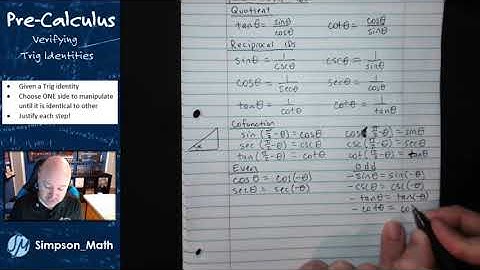 Pre-Calculus
Verifying
Trig Identities
• Given a Trig identity
• Choose ONE side to manipulate
until it is identical to other
• Justify each step!
Simpson_Math
Quotient
tanθ = sinθ/cosθ cotθ = cosθ/sinθ
Reciprocal IDs
sinθ = 1/cscθ cscθ = 1/sinθ
cosθ = 1/secθ secθ = 1/cosθ
tanθ = 1/cotθ cotθ = 1/tanθ
Cofunction
sin(π/2-θ) = cosθ cos(π/2-θ) = sinθ
sec(π/2-θ) = cscθ csc(π/2-θ) = secθ
tan(π/2-θ) = cotθ cot(π/2-θ) = tanθ
Even Odd
cosθ = cos(-θ) -sinθ = sin(-θ)
secθ = sec(-θ) -cscθ = csc(-θ)
-tanθ = tan(-θ)
-cotθ = co